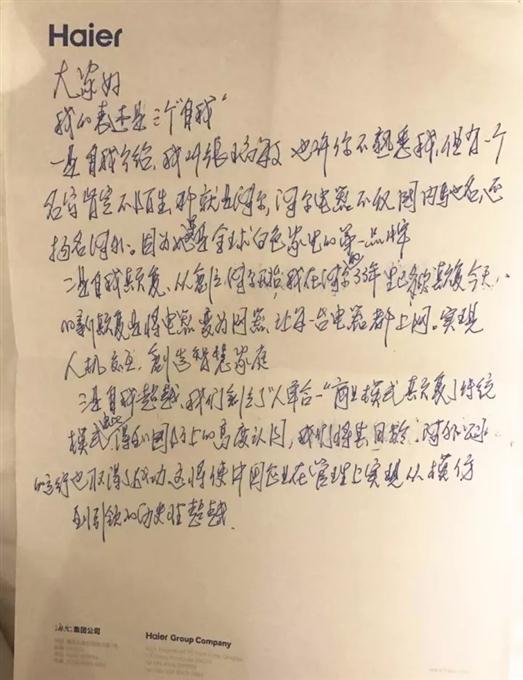 Haier
大家好
我的表述是三个"自我"
一是自我介绍,我叫张瑞敏 也许你不熟悉我,但有一个
名字肯定不陌生,那就是海尔,海尔电器不仅国内知名,还
扬名海外。因为她是全球白色家电的第一品牌
二是自我颠覆,从创立海尔开始,我在海尔33年 颠覆今天
的颠覆是将电器变为网器,让每一台电器都上网。实现
人机交互,创造智慧家庭
三是自我超越,我们创立了"人单合一"商业模式 颠覆了传统
模式 得到国际上的高度认同,我们将其 对外
的 也取得了成功。这将使中国企业在管理上实现从模仿
到引领的历史性超越。
集团公司
Haier Group Company